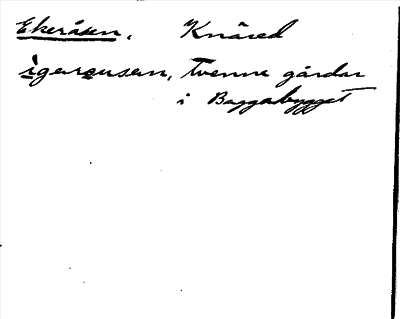 Ekeråsen, Knäred
igerǫusen, Tvenne gårdar
i Baggabygget